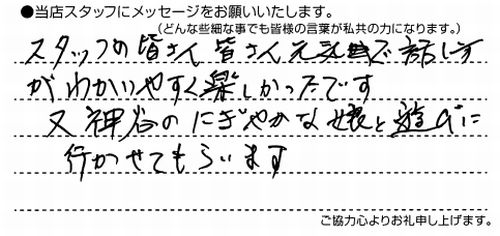 ●当店スタッフにメッセージをお願いいたします。
(どんな些細な事でも皆様の言葉が私共の力になります。)
スタッフの皆さん 皆さん元気で 話し方
がわかりやすく楽しかったです
又神谷のにぎやかな娘と遊びに
行かせてもらいます
ご協力心よりお礼申し上げます。